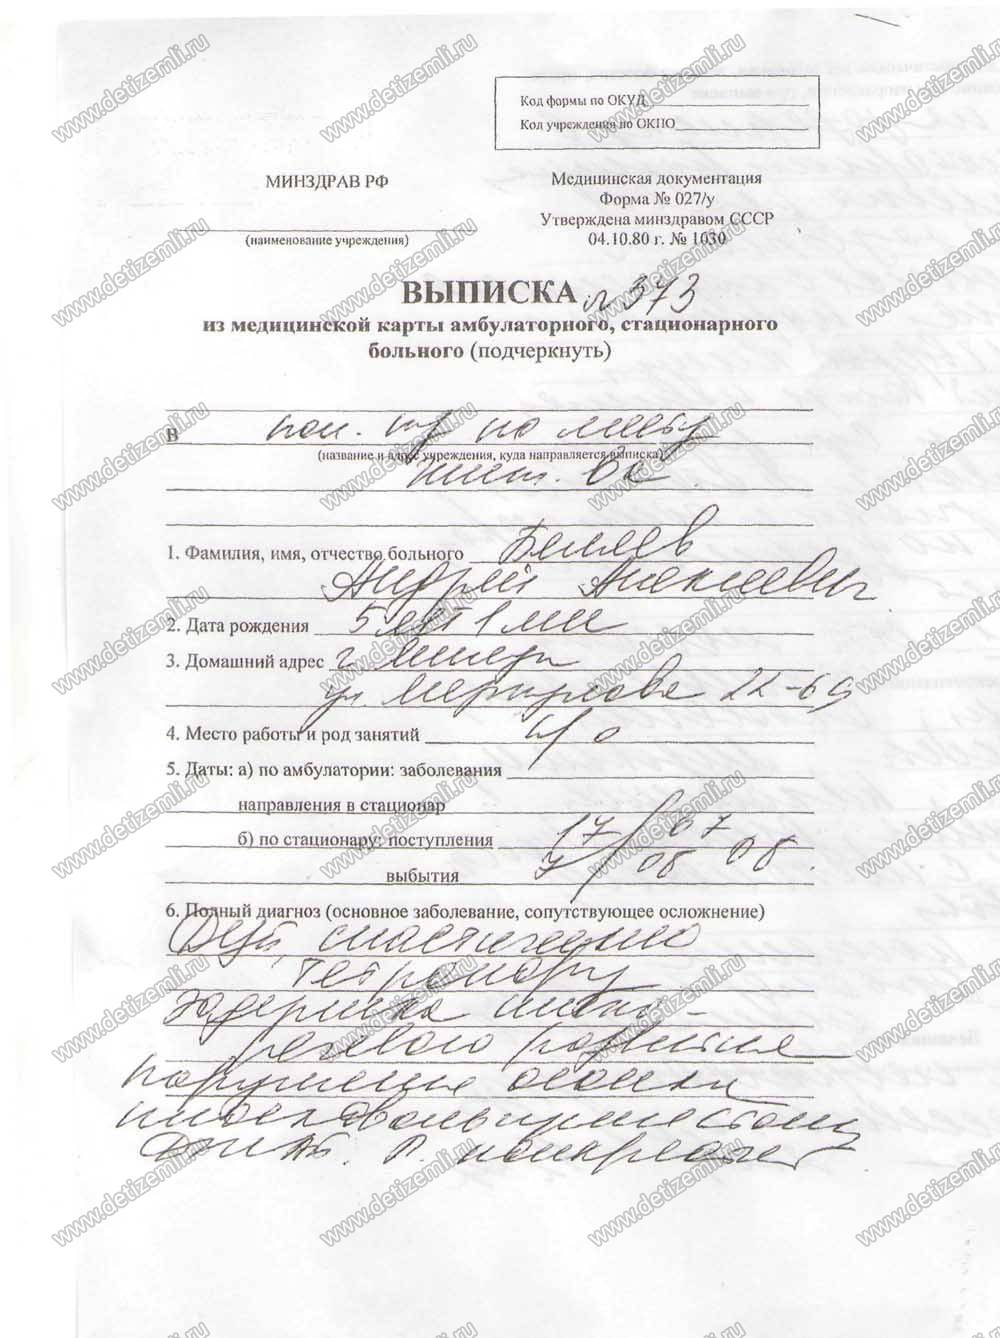 Код формы по ОКУД
Код учреждения по ОКПО
МИНЗДРАВ РФ
(наименование учреждения)
Медицинская документация
Форма № 027/у
Утверждена минздравом СССР
04.10.80 г. № 1030
ВЫПИСКА № 373
из медицинской карты амбулаторного, стационарного
больного (подчеркнуть)
В по месту
(название и адрес учреждения, куда направляется выписка)
1. Фамилия, имя, отчество больного Беляев
Андрей Алексеевич
2. Дата рождения 5 лет 1 мес
3. Домашний адрес г.
ул. 22-69
4. Место работы и род занятий н/о
5. Даты: а) по амбулатории: заболевания
направления в стационар
б) по стационару: поступления 17/07
выбытия 7/08 08.
6. Полный диагноз (основное заболевание, сопутствующее осложнение)
ДЦП, спастический
тетрапарез
Задержка психо-
речевого развития
нарушение осанки
плосковальгусные стопы
панкреат
www.detizemli.ru